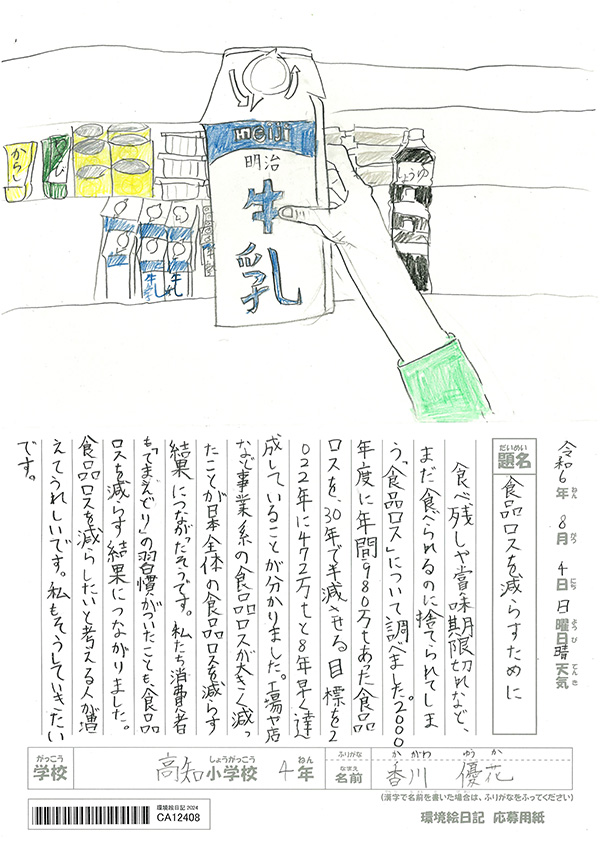 meiji
明治
牛乳
からし
しょうゆ
牛乳
牛乳
令和6年 8月 4日 日曜日 晴 天気
ねん がつ にち ようび てんき
だいめい
題名
食品ロスを減らすために
食べ残しや賞味期限切れなど、
まだ食べられるのに捨てられてしま
う「食品ロス」について調べました。2000
年度に年間980万tもあった食品
ロスを、30年で半減させる目標を2
022年に472万tと8年早く達
成していることが分かりました。工場や店
など事業系の食品ロスが大きく減っ
たことが日本全体の食品ロスを減らす
結果につながったそうです。私たち消費者
も「てまえどり」の習慣がついたことも食品
ロスを減らす結果につながりました。
食品ロスを減らしたいと考える人が増
えてうれしいです。私もそうしていきたい
です。
がっこう
学校
高知
しょうがっこう
小学校
4
ねん
年
ふりがな
かがわ ゆうか
なまえ
名前
香川 優花
(漢字で名前を書いた場合は、ふりがなをふってください)
環境絵日記 2024
CA12408
環境絵日記 応募用紙